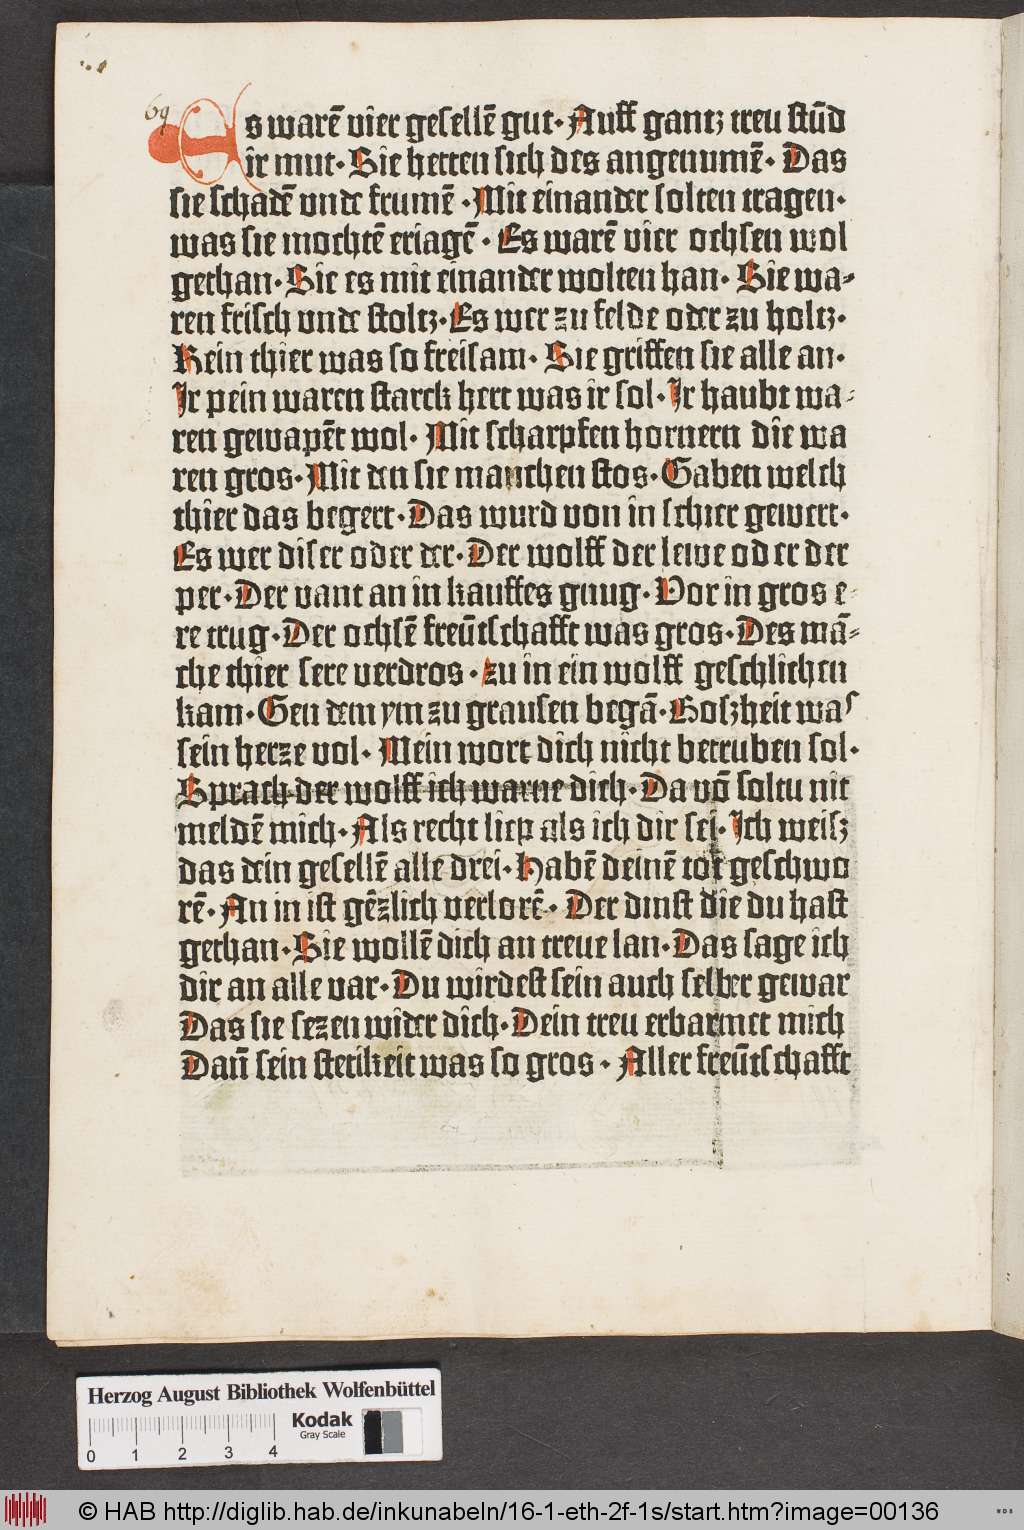 69
Es warē vier gesellē gut· Auff gantz treu stūd
ir mut· Sie hetten sich des angenumē· Das
sie schadē vnde frumē· Mit einander solten tragen·
was sie mochtē eriagē· Es warē vier ochsen wol
gethan· Sie es mit einander wolten han· Sie wa-
ren frisch vnde stoltz· Es wer zu felde oder zu holtz·
Kein thier was so freisam· Sie griffen sie alle an·
Ir pein waren starck hert was ir sol· Ir haubt wa-
ren gewapēt wol· Mit scharpfen hornern die wa
ren gros· Mit den sie manchen stos· Gaben welch
thier das begert· Das wurd von in schier gewert·
Es wer diser oder der· Der wolff der lewe oder der
per· Der vant an in kauffes gnug· Vor in gros e-
re trug· Der ochsē freūtschafft was gros· Des mā-
che thier sere verdros· zu in ein wolff geschlichen
kam· Gen dem ym zu grausen begā· Boszheit was
sein herze vol· Mein wort dich nicht betruben sol·
Sprach der wolff ich warne dich· Da vō soltu nit
meldē mich· Als recht liep als ich dir sei· Ich weisz
das dein gesellē alle drei· Habē deinē tot geschwo
rē· An in ist gēzlich verlorē· Der dinst die du hast
gethan· Sie wollē dich an treue lan· Das sage ich
dir an alle var· Du wirdest sein auch selber gewar
Das sie sezen wider dich· Dein treu erbarmet mich
Dañ sein stetikeit was so gros· Aller freūtschafft
Herzog August Bibliothek Wolfenbüttel
Kodak
Gray Scale
0 1 2 3 4
© HAB http://diglib.hab.de/inkunabeln/16-1-eth-2f-1s/start.htm?image=00136